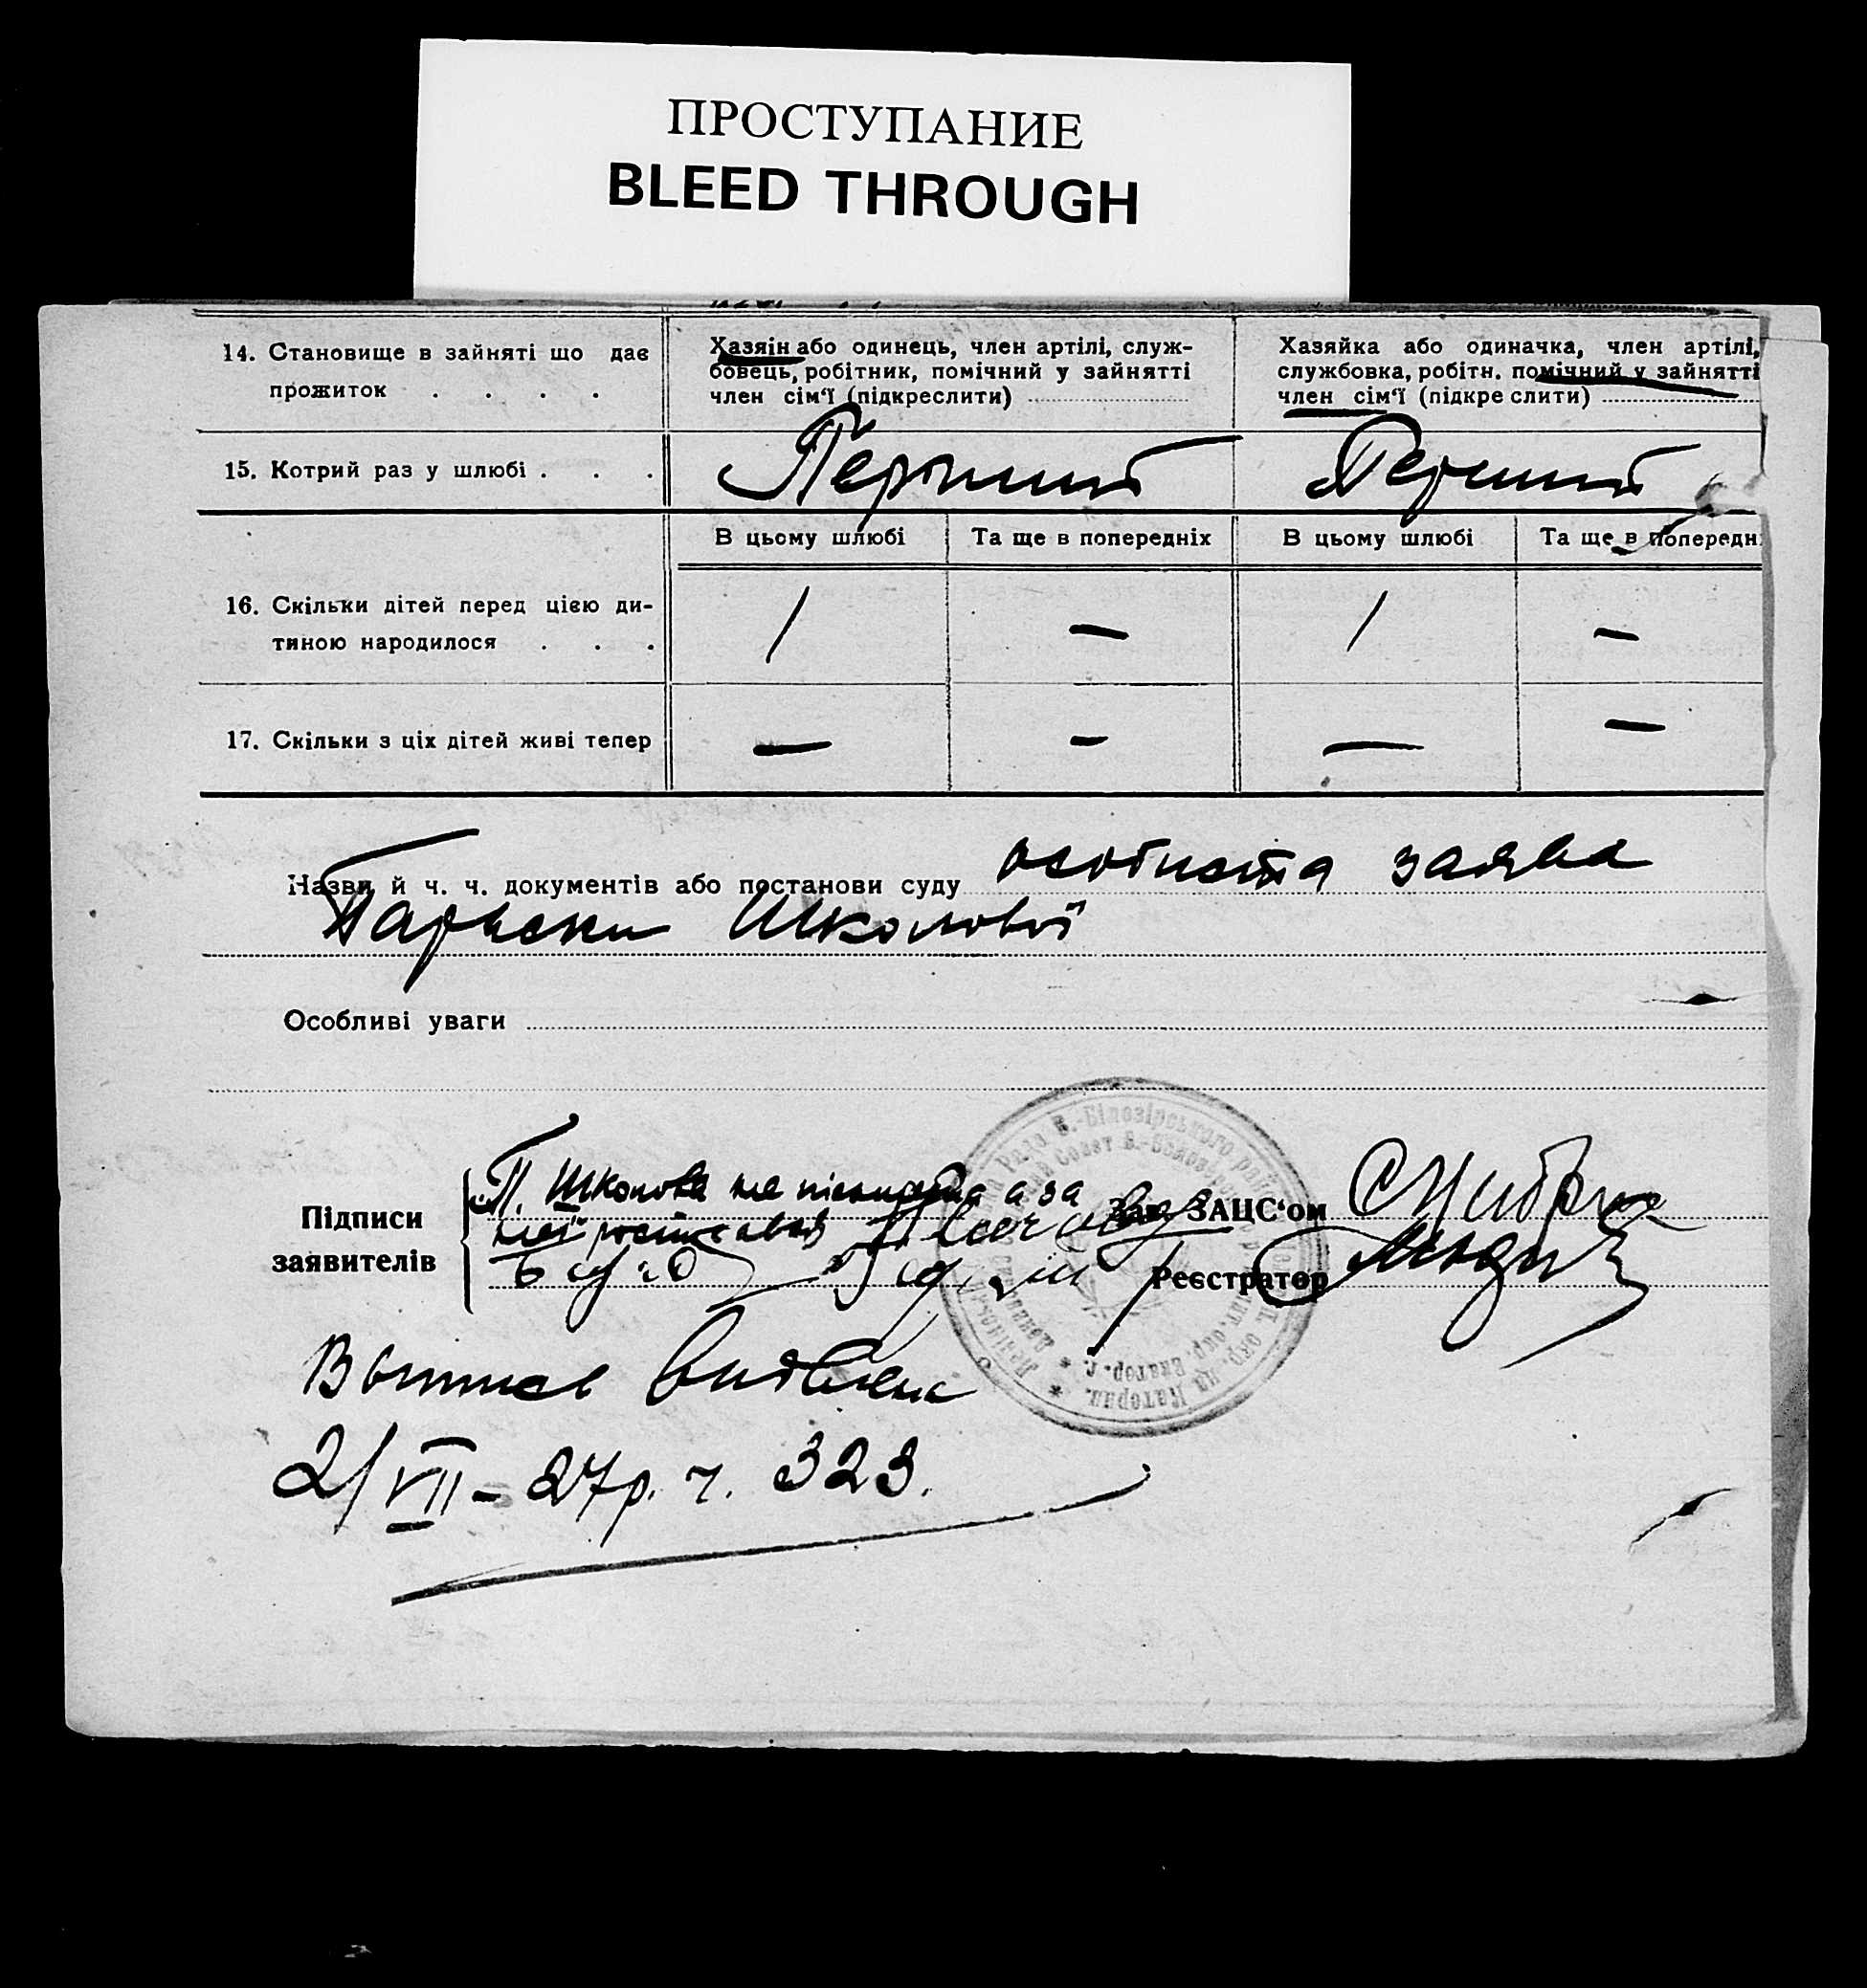 ПРОСТУПАНИЕ
BLEED THROUGH
14. Становище в зайняті що дає
прожиток . . . .
Хазяін або одинець, член артілі, служ-
бовець, робітник, помічний у зайнятті
член сім'ї (підкреслити)
Хазяйка або одиначка, член артілі,
службовка, робітн. помічний у зайнятті
член сім'ї (підкре слити)
15. Котрий раз у шлюбі . . .
Перший
Перший
В цьому шлюбі
Та ще в попередніх
В цьому шлюбі
Та ще в попередн
16. Скільки дітей перед цією ди-
тиною народилося . . .
/ — / —
17. Скільки з ціх дітей живі тепер
— — — —
Назви й ч. ч. документів або постанови суду особиста заява
Параски Школової
Особливі уваги
Підписи
заявителів
П. Школова не письмена а за
неї
Зав. ЗАЦС'ом
Реєстратор
Рада В.-Білозірського рай
Совет В.-Белозер
Катерин.
окр. Екатер. г.
Выпись видана
2/VII - 27р. ч. 323.